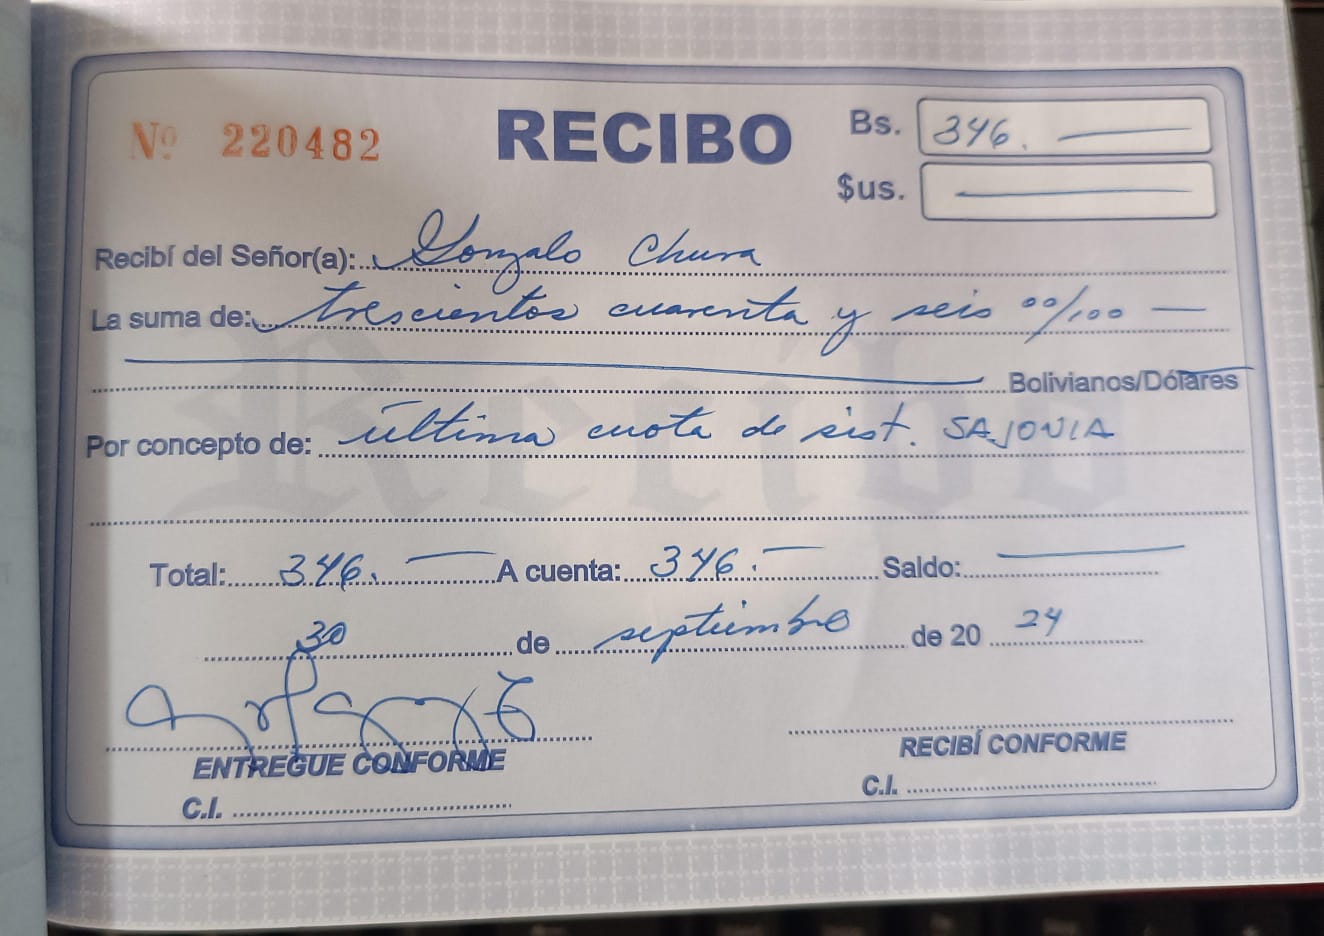 Nº 220482
RECIBO
Bs. 346.
$us.
Recibí del Señor(a): Gonzalo Chura
La suma de: trescientos cuarenta y seis 00/100
Bolivianos/Dólares
Por concepto de: última cuota de sist. SAJONIA
Total: 346. A cuenta: 346. Saldo:
30 de septiembre de 2024
ENTREGUE CONFORME
RECIBÍ CONFORME
C.I.
C.I.
Recibo